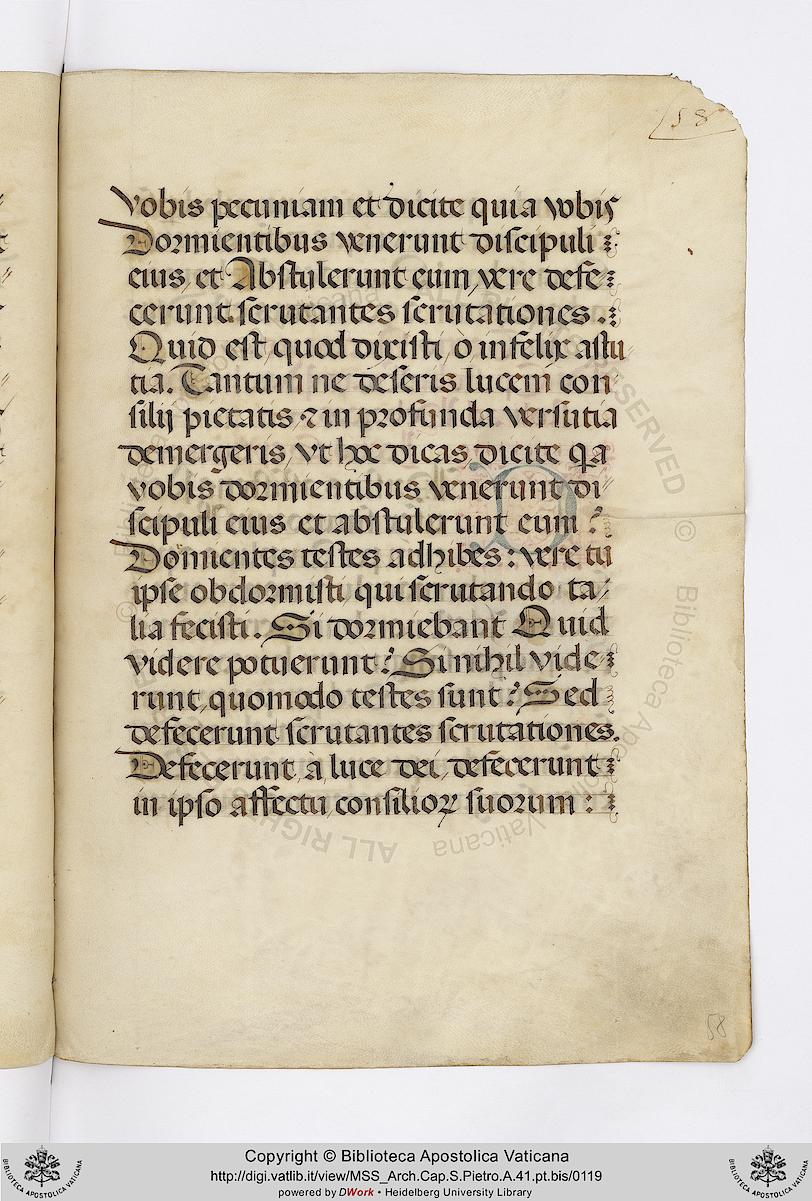 58
vobis pecuniam et dicite quia vobis
Dormientibus venerunt discipuli
eius, et Abstulerunt eum, vere defe
cerunt scrutantes scrutationes.
Quid est, quod dixisti, o infelix astu
tia. Tantum ne deseris lucem con
silij pietatis ⁊ in profunda versutia
demergeris, vt hoc dicas, dicite qa
vobis dormientibus venerunt di
scipuli eius et abstulerunt eum ?
Domientes testes adhibes: vere tu
ipse obdormisti, qui scrutando ta
lia fecisti. Si dormiebant Quid
videre potuerunt? Si nihil vide
runt, quomodo testes sunt? Sed
defecerunt scrutantes scrutationes.
Defecerunt à luce dei, defecerunt
in ipso affectu consilioꝝ suorum :
58
Copyright © Biblioteca Apostolica Vaticana
http://digi.vatlib.it/view/MSS_Arch.Cap.S.Pietro.A.41.pt.bis/0119
powered by DWork • Heidelberg University Library